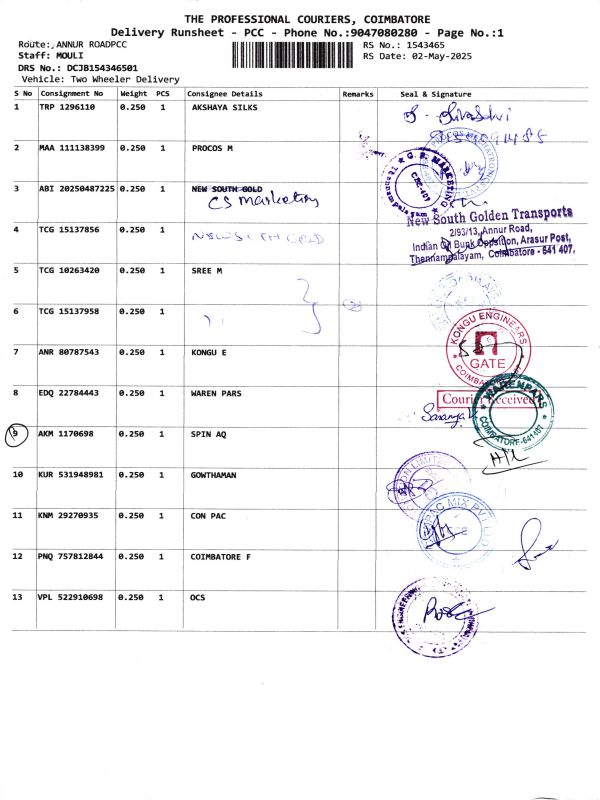 THE PROFESSIONAL COURIERS, COIMBATORE
Delivery Runsheet - PCC - Phone No.:9047080280 - Page No.:1
Route: ANNUR ROADPCC
RS No.: 1543465
Staff: MOULI
RS Date: 02-May-2025
DRS No.: DCJB154346501
Vehicle: Two Wheeler Delivery
S No Consignment No Weight PCS Consignee Details Remarks Seal & Signature
1 TRP 1296110 0.250 1 AKSHAYA SILKS
2 MAA 111138399 0.250 1 PROCOS M
3 ABI 20250487225 0.250 1 NEW SOUTH GOLD
CS Marketing
New South Golden Transports
2/93/13, Annur Road,
Indian Oil Bunk Opposition, Arasur Post,
Thennampalayam, Coimbatore - 641 407.
4 TCG 15137856 0.250 1
5 TCG 10263420 0.250 1 SREE M
6 TCG 15137958 0.250 1
7 ANR 80787543 0.250 1 KONGU E
KONGU ENGINEARS
GATE
8 EDQ 22784443 0.250 1 WAREN PARS
Courier Received
WARENPARS
COIMBATORE-641407
Saranya
9 AKM 1170698 0.250 1 SPIN AQ
10 KUR 531948981 0.250 1 GOWTHAMAN
11 KNM 29270935 0.250 1 CON PAC
12 PNQ 757812844 0.250 1 COIMBATORE F
13 VPL 522910698 0.250 1 OCS